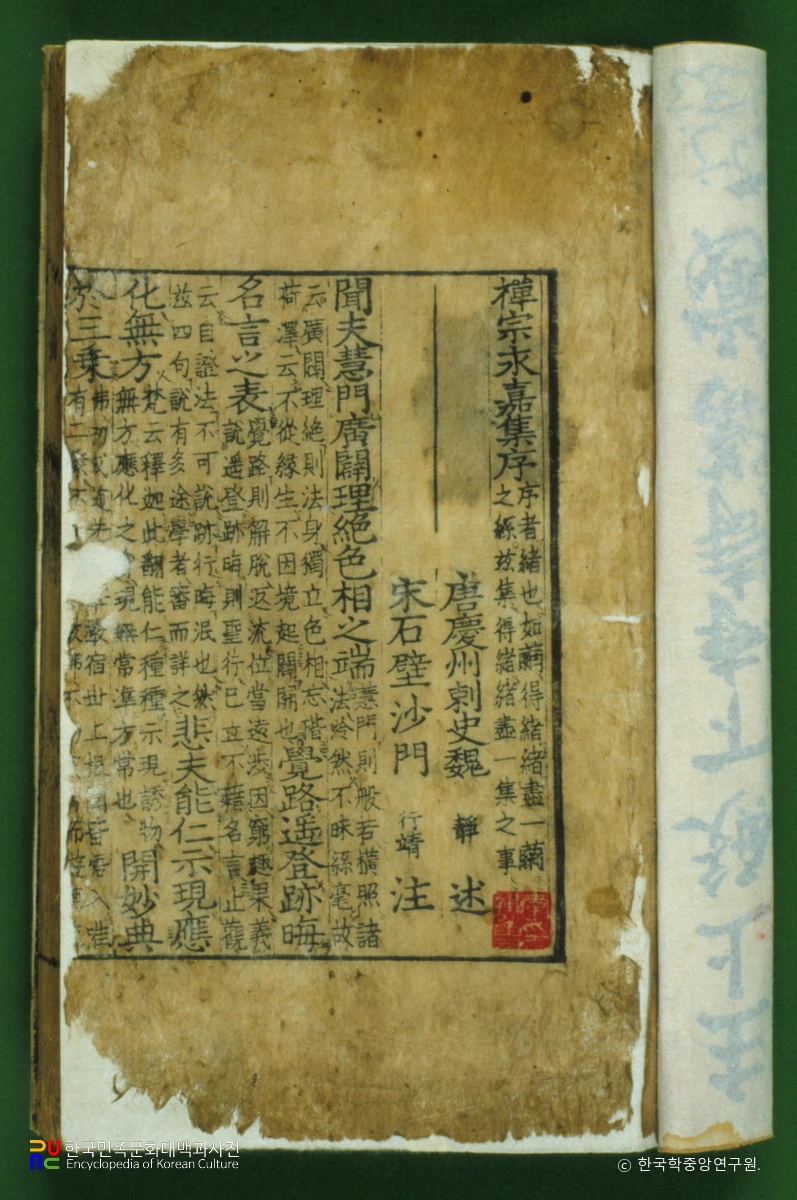 禪宗永嘉集序 序者緒也如繭得緒緒盡一繭
之絲玆集得緒緒盡一集之事
唐慶州刺史魏 靜 述
宋石壁沙門 行靖 注
聞夫慧門廣闢理絶色相之端 慧門則般若橫照諸
法泠然不昧絲毫故
云廣闢理絶則法身獨立色相忘
荷澤云不從緣生不因境起闢開也 覺路遥登跡晦
名言之表 覺路則解脫返流位當遠涉因窮趣果義
說遥登跡晦則聖行已立不藉名言止觀
云自證法不可說跡行晦泯也然
玆四句說有多途學者審而詳之 悲夫能仁示現應
化無方 梵云釋迦此翻能仁種種示現誘物
無方應化之 現無常準方常也 開妙典
於三乗
한국민족문화대백과사전
Encyclopedia of Korean Culture
ⓒ 한국학중앙연구원.